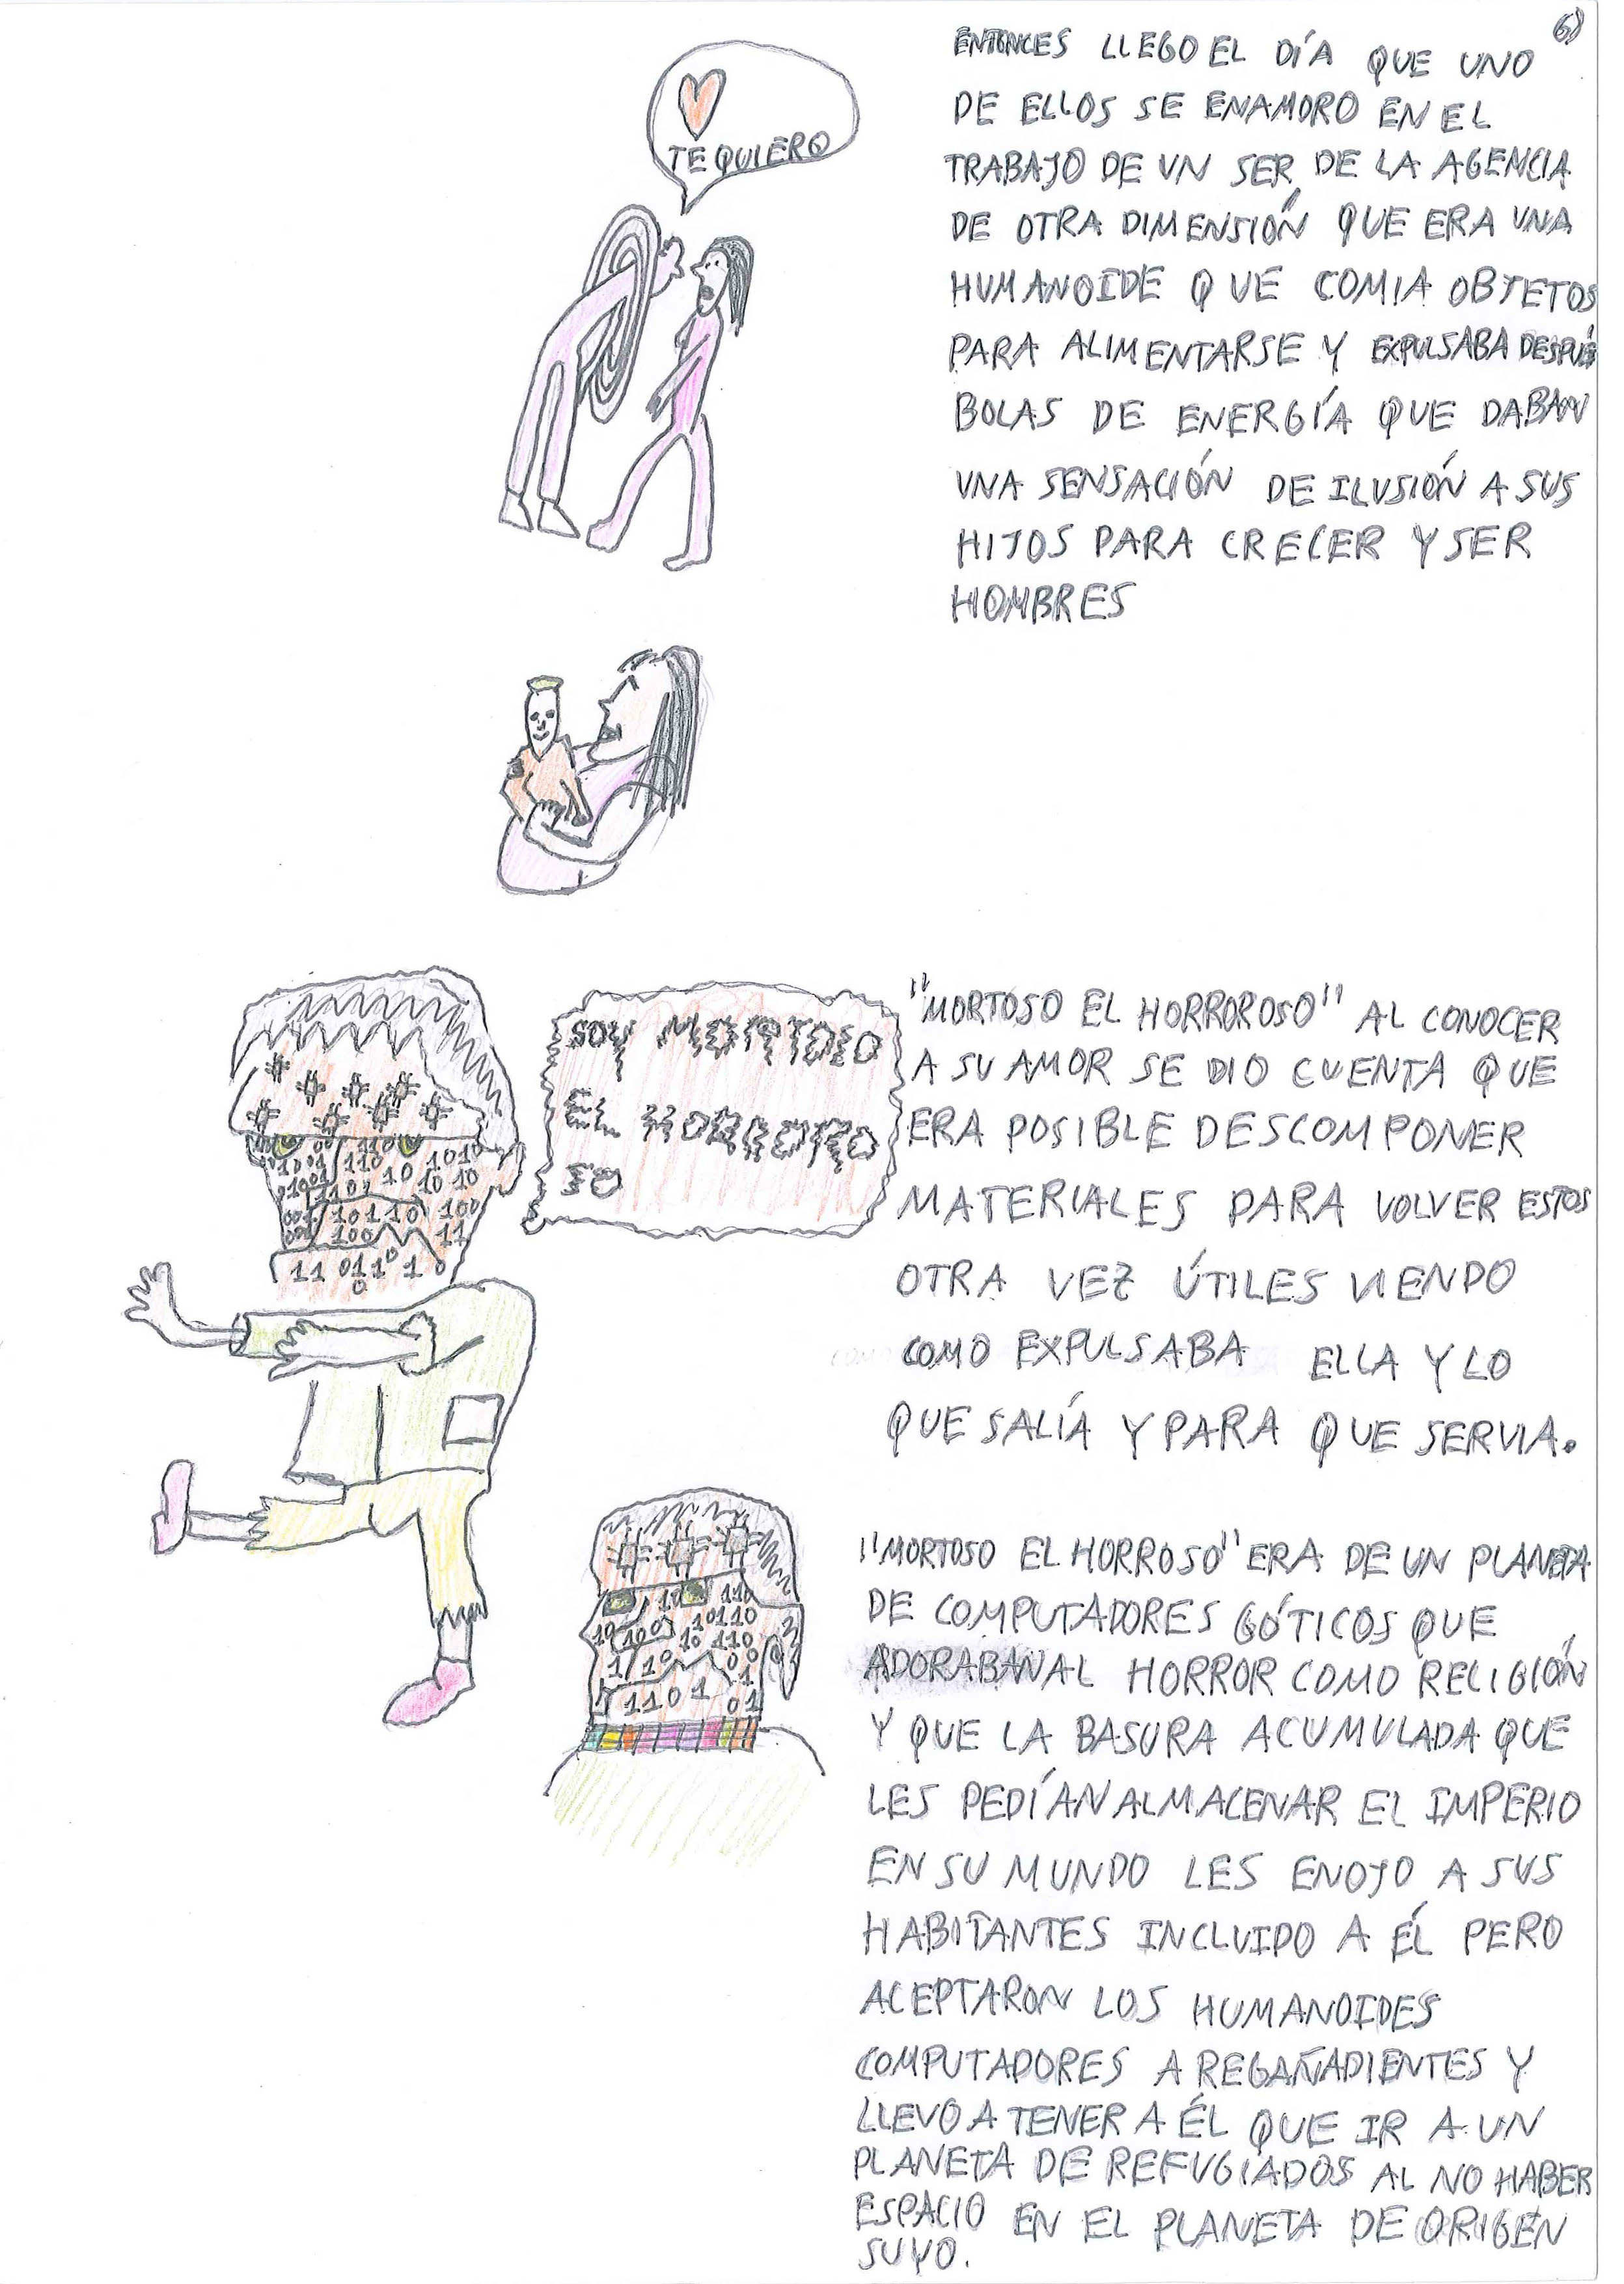 6)
ENTONCES LLEGO EL DÍA QUE UNO
DE ELLOS SE ENAMORO EN EL
TRABAJO DE UN SER DE LA AGENCIA
DE OTRA DIMENSIÓN QUE ERA UNA
HUMANOIDE QUE COMIA OBJETOS
PARA ALIMENTARSE Y EXPULSABA DESPUÉS
BOLAS DE ENERGÍA QUE DABAN
UNA SENSACIÓN DE ILUSIÓN A SUS
HIJOS PARA CRECER Y SER
HOMBRES
TE QUIERO
SOY MORTOSO
EL HORRORO
SO
"MORTOSO EL HORROROSO" AL CONOCER
A SU AMOR SE DIO CUENTA QUE
ERA POSIBLE DESCOMPONER
MATERIALES PARA VOLVER ESTOS
OTRA VEZ ÚTILES VIENDO
COMO EXPULSABA ELLA Y LO
QUE SALÍA Y PARA QUE SERVIA.
"MORTOSO EL HORROSO" ERA DE UN PLANETA
DE COMPUTADORES GÓTICOS QUE
ADORABAN AL HORROR COMO RELIGIÓN
Y QUE LA BASURA ACUMULADA QUE
LES PEDÍAN ALMACENAR EL IMPERIO
EN SU MUNDO LES ENOJO A SUS
HABITANTES INCLUIDO A ÉL PERO
ACEPTARON LOS HUMANOIDES
COMPUTADORES A REGAÑADIENTES Y
LLEVO A TENER A ÉL QUE IR A UN
PLANETA DE REFUGIADOS AL NO HABER
ESPACIO EN EL PLANETA DE ORIGEN
SUYO.